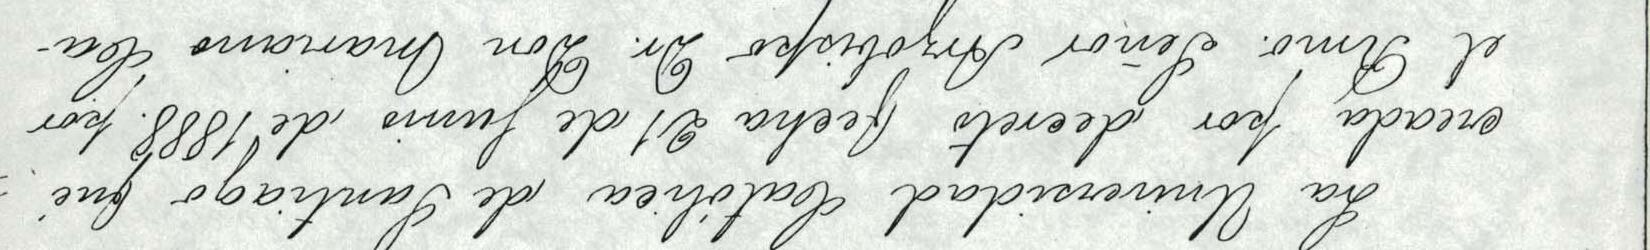 La Universidad Católica de Santiago fué
creada por decreto fecha 21 de Junio de 1888. por
el Iltmo. Señor Arzobispo Dr. Don Mariano Ca-